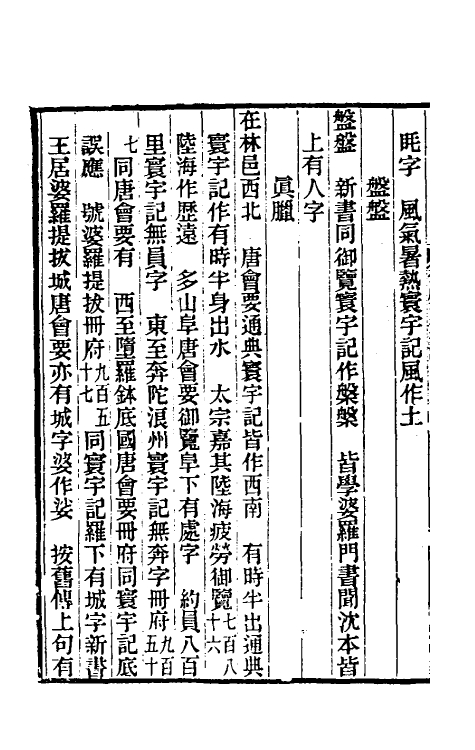 毦字　風氣暑熱寰宇記風作土
盤盤
盤盤　新書同御覽寰宇記作槃槃　皆學婆羅門書聞沈本皆
上有人字
眞臘
在林邑西北　唐會要通典寰宇記皆作西南　有時半出通典
寰宇記作有時半身出水　太宗嘉其陸海疲勞御覽七百八十六
陸海作歷遠　多山阜唐會要御覽阜下有處字　約員八百
里寰宇記無員字　東至奔陀浪州寰宇記無奔字冊府九百五十
七同唐會要有　西至墮羅鉢底國唐會要冊府同寰宇記底
誤應　號婆羅提拔冊府九百五十七同寰宇記羅下有城字新書
王居婆羅提拔城唐會要亦有城字婆作娑　按舊傳上句有